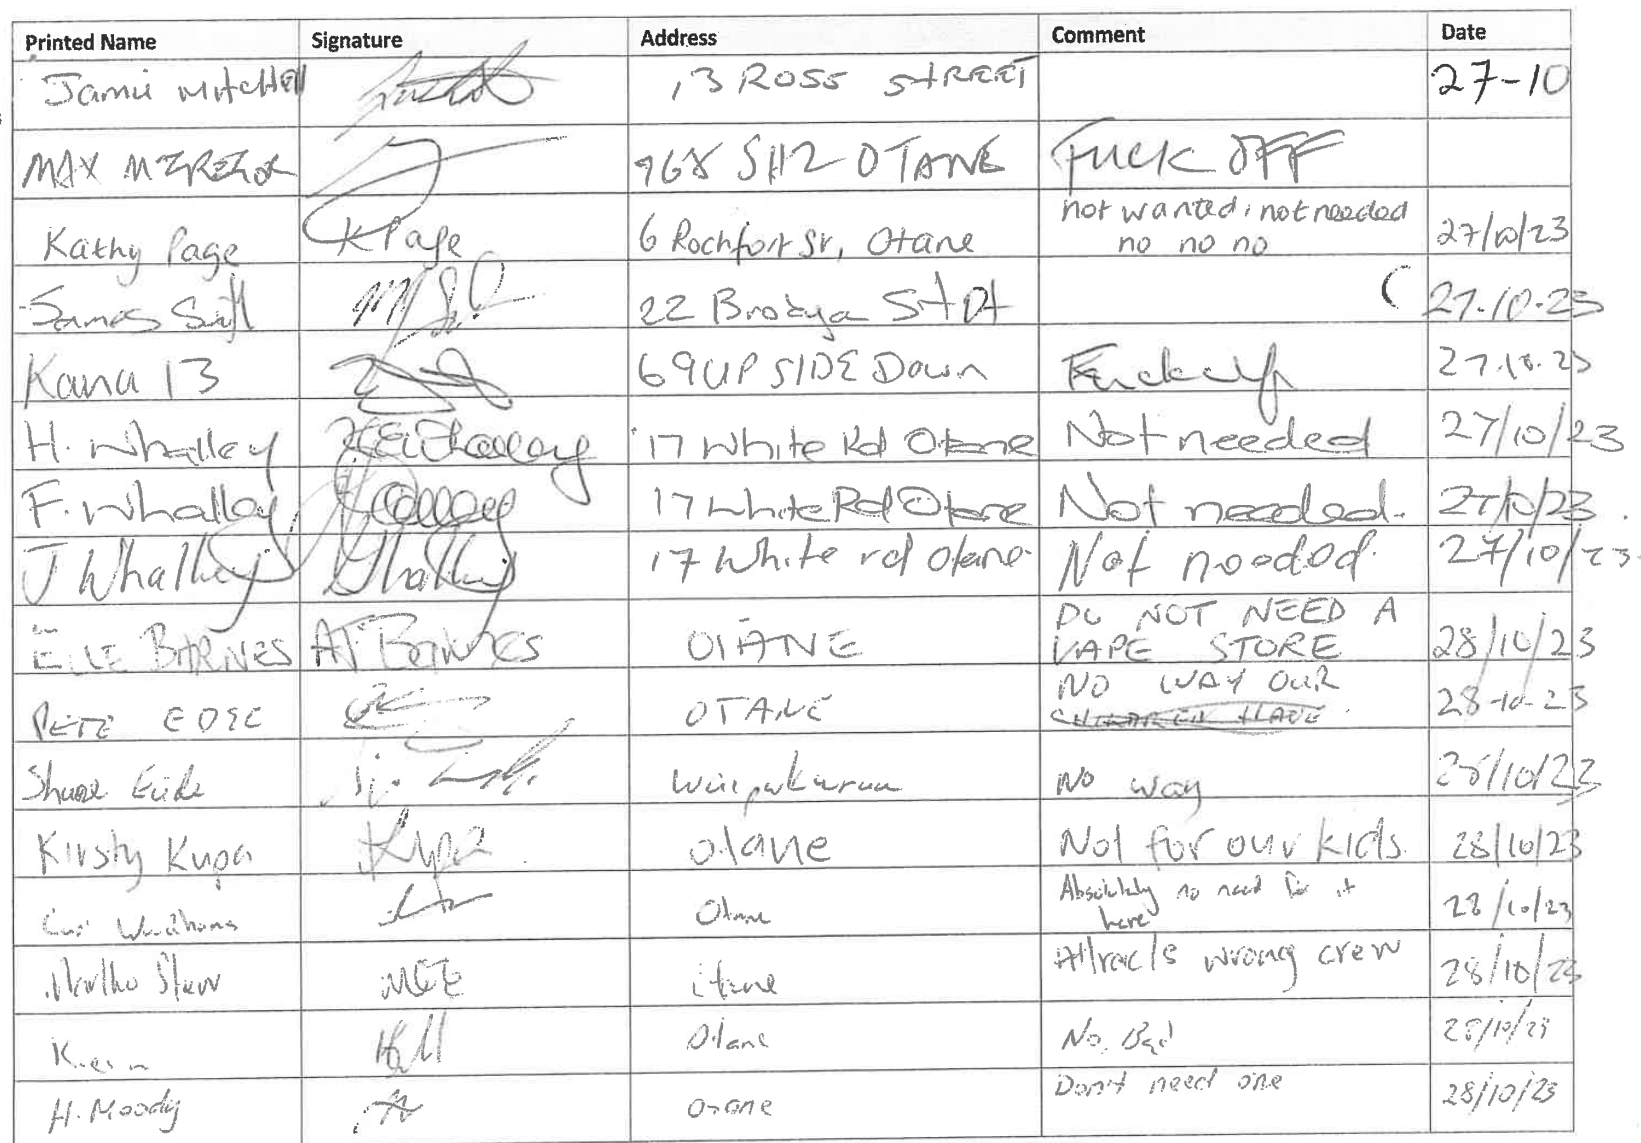 Printed Name Signature Address Comment Date
Jamie Mitchell 13 ROSS STREET 27-10
MAX 968 SH2 OTANE FUCK OFF
Kathy Page K Page 6 Rochfort St, Otane not wanted, not needed
no no no 27/10/23
James 22 St 27.10.23
Kana 13 69 UP SIDE Down Fuck up 27.10.23
H. Whalley Whalley 17 White Rd Otane Not needed 27/10/23
F. Whalley Whalley 17 White Rd Otane Not needed. 27/10/23
J Whalley Whalley 17 White rd otane. Not needed. 27/10/23
BARNES Barnes OTANE DO NOT NEED A
VAPE STORE 28/10/23
PETE OTANE NO WAY OUR
CHILDREN HAVE 28-10-23
Waipukurau No way 28/10/23
Kirsty Kupa Kupa otane Not for our kids. 28/10/23
Otane Absolutely no need for it
here 28/10/23
otane Attracts wrong crew 28/10/23
Otane No, Bad 28/10/23
H. Moody Otane Don't need one 28/10/23